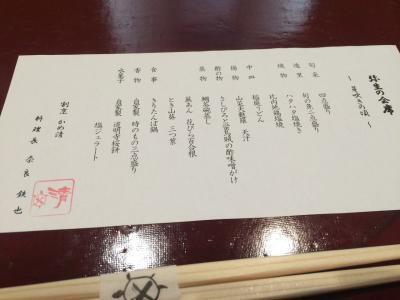 弥生の会席
～芽吹きの頃～
旬采 四点盛り
造里 旬の魚二点盛り
焼物 ハタハタ塩焼き
比内地鶏塩焼
中皿 稲庭うどん
揚物 山菜天麩羅 天汁
酢の物 さしびろと蛍烏賊の酢味噌がけ
蒸物 鯛若蒸し
銀あん 花びら百合根
とき山葵 三つ葉
食事 きりたんぽ鍋
香物 自家製 時のもの三点盛り
水菓子 自家製 道明寺桜餅
塩ジェラート
割烹 かめ清
料理長 奈良 鉄也